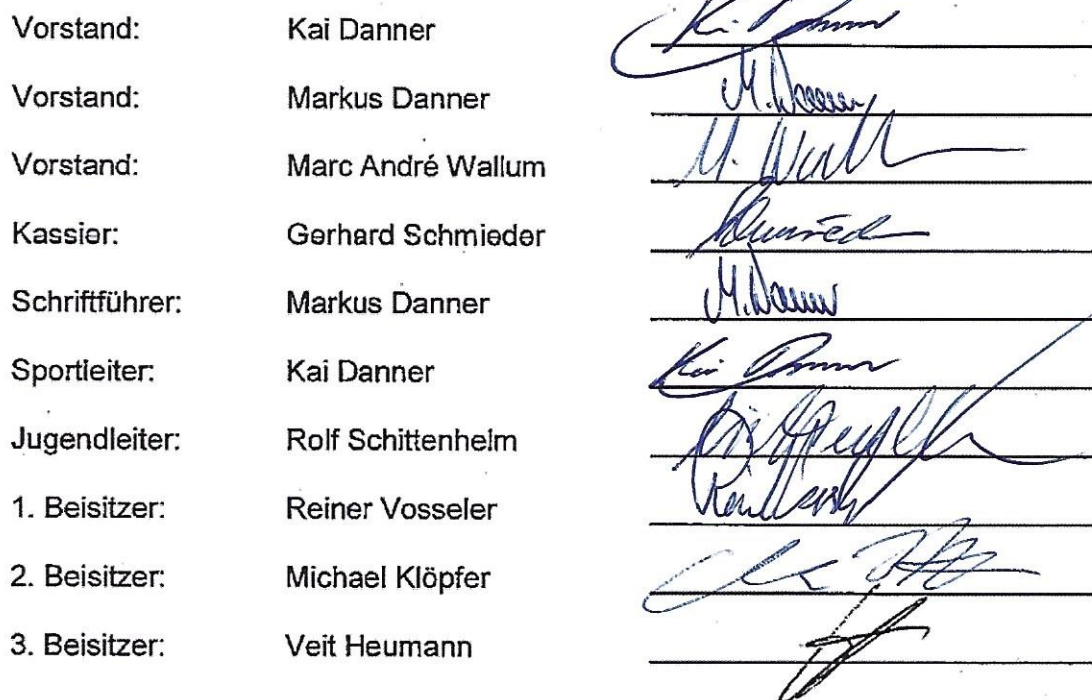 Vorstand: Kai Danner Kai Danner
Vorstand: Markus Danner M. Danner
Vorstand: Marc André Wallum M. Wall
Kassier: Gerhard Schmieder
Schriftführer: Markus Danner M. Danner
Sportleiter: Kai Danner Kai Danner
Jugendleiter: Rolf Schittenhelm
1. Beisitzer: Reiner Vosseler
2. Beisitzer: Michael Klöpfer
3. Beisitzer: Veit Heumann